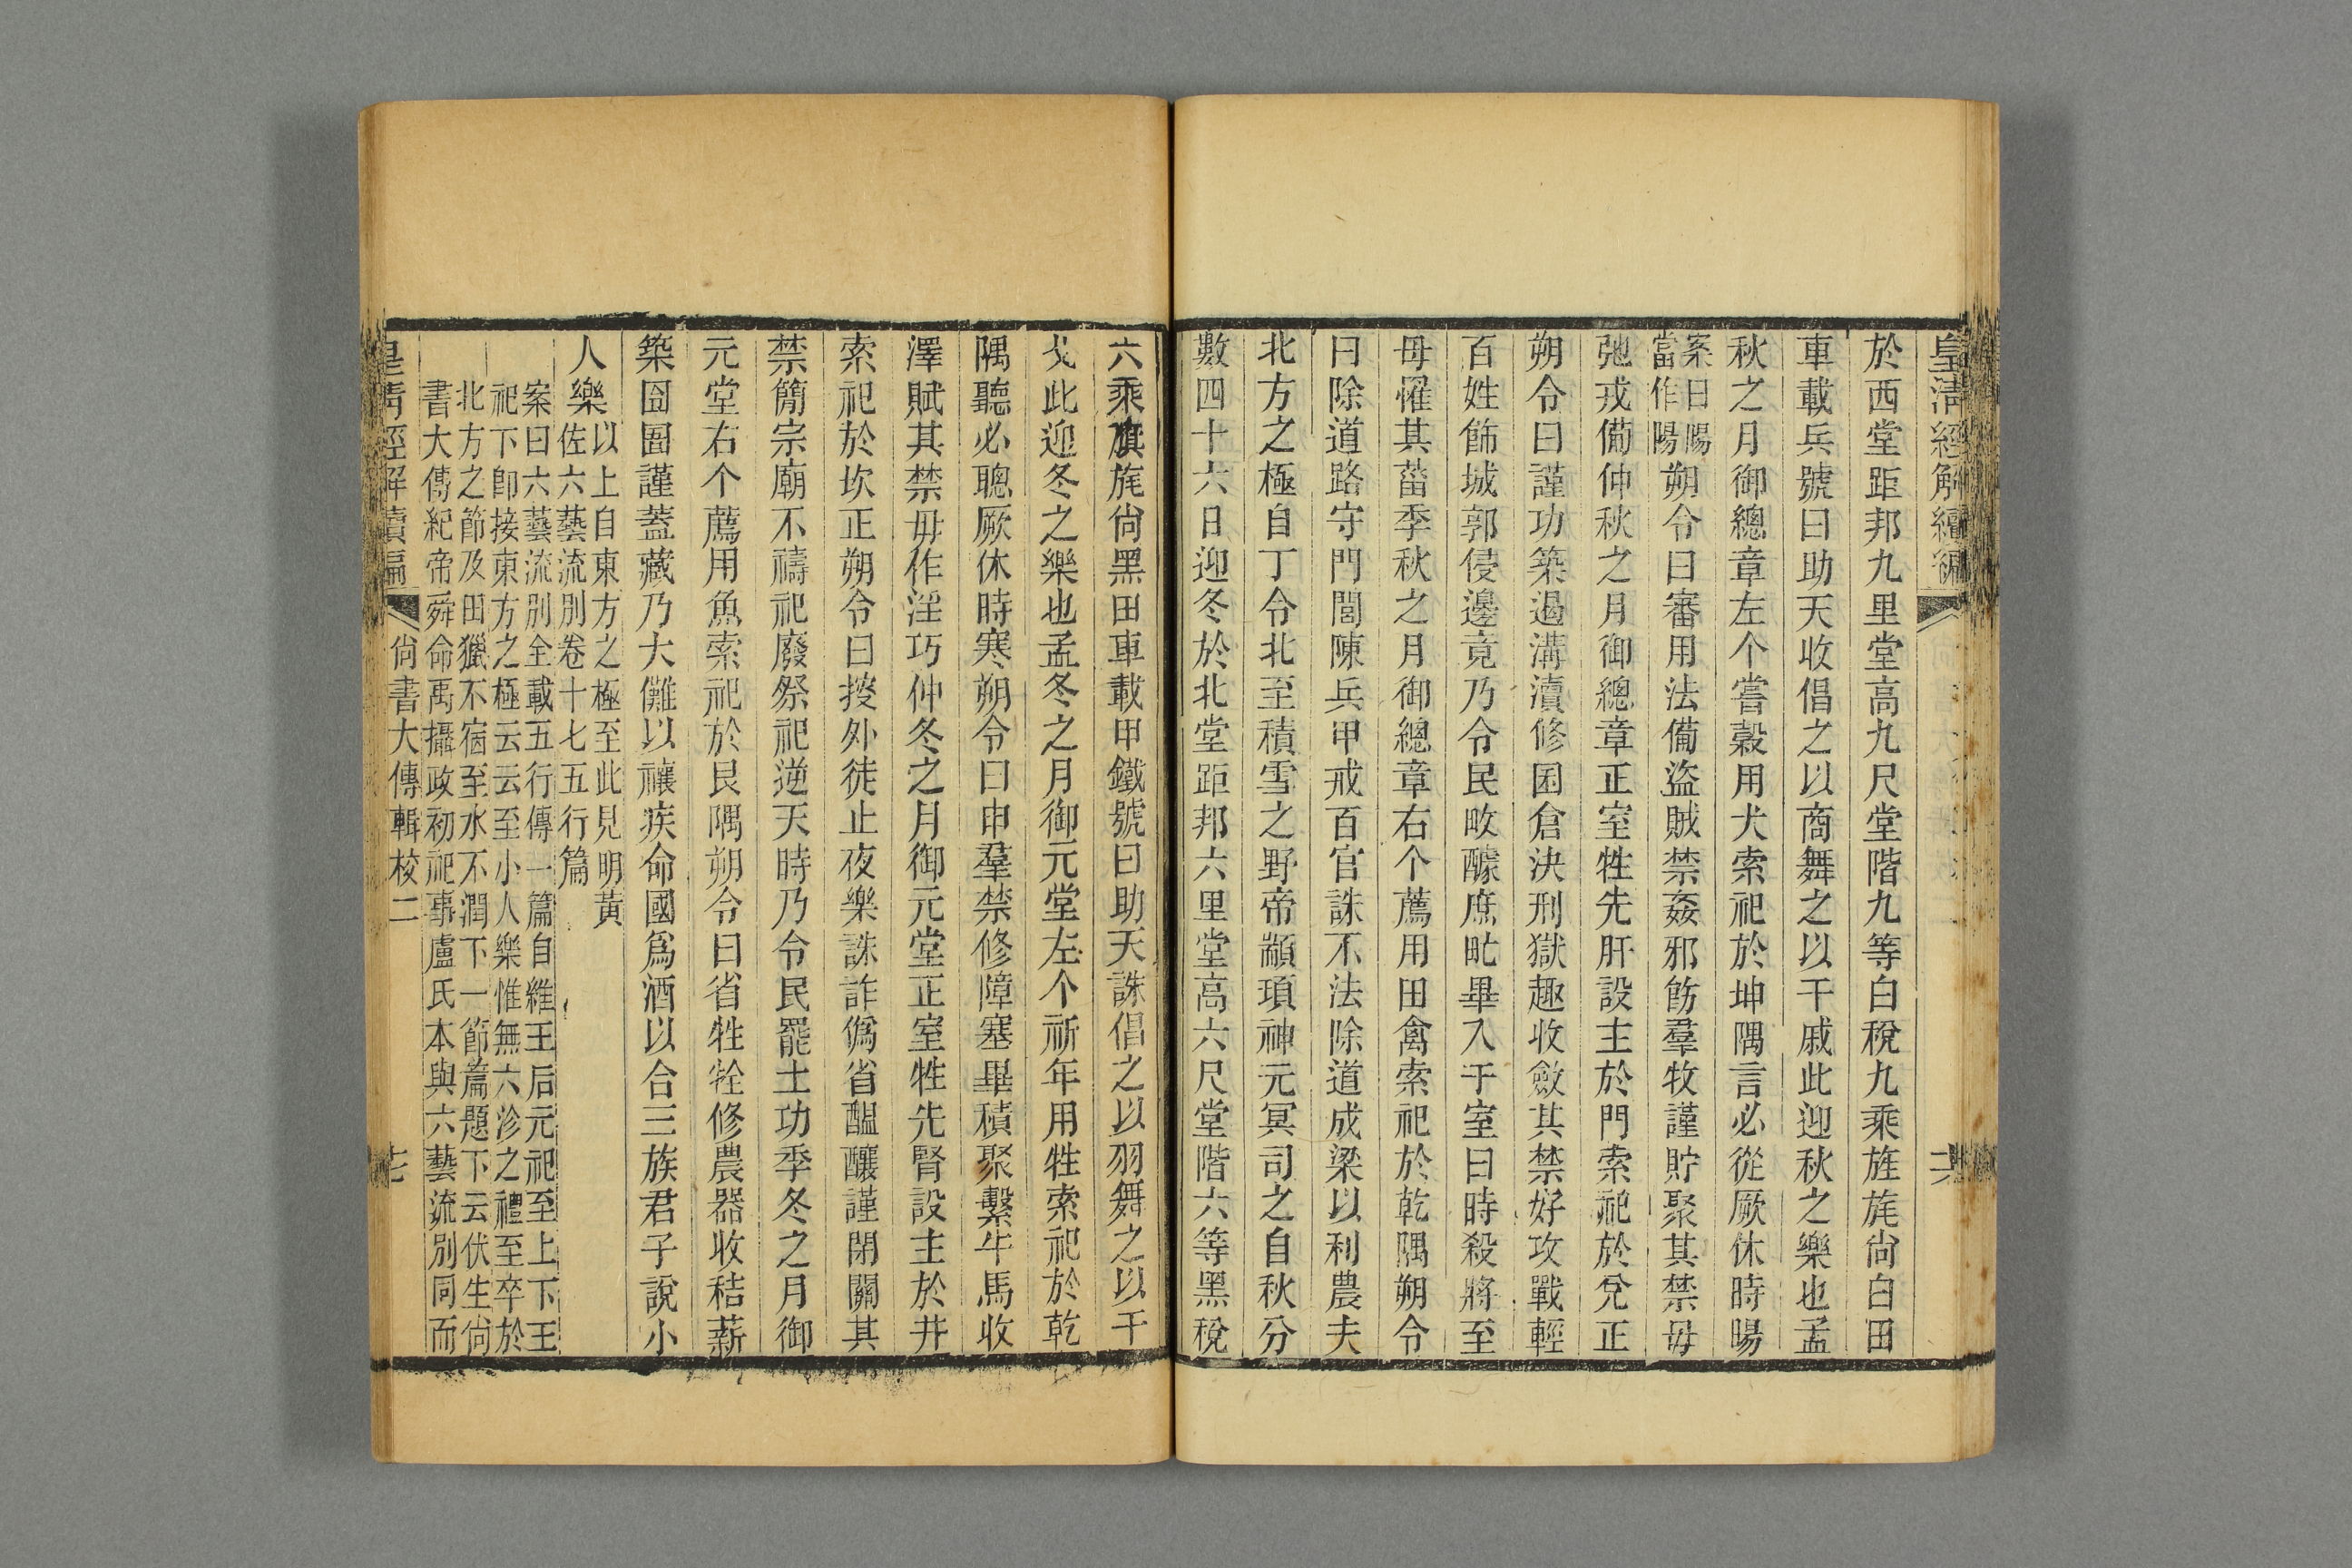 皇清經解續編
於西堂距邦九里堂高九尺堂階九等白稅九乘旌旄尙白田
車載兵號曰助天收倡之以商舞之以干戚此迎秋之樂也孟
秋之月御總章左个嘗穀用犬索祀於坤隅言必從厥休時暘
案日陽
當作陽
朔令曰審用法備盜賊禁姦邪飭羣牧謹貯聚其禁毋
弛戎備仲秋之月御總章正室牲先肝設主於門索祀於兌正
朔令曰謹功築遏溝瀆修囷倉決刑獄趣收斂其禁好攻戰輕
百姓飾城郭侵邊竟乃令民畋醵庶甿畢入于室曰時殺將至
毋罹其菑季秋之月御總章右个薦用田禽索祀於乾隅朔令
曰除道路守門閭陳兵甲戒百官誅不法除道成梁以利農夫
北方之極自丁令北至積雪之野帝顓頊神元冥司之自秋分
數四十六日迎冬於北堂距邦六里堂高六尺堂階六等黑稅
六乘旗旄尙黑田車載甲鐵號曰助天誅倡之以羽舞之以干
戈此迎冬之樂也孟冬之月御元堂左个祈年用牲索祀於乾
隅聽必聰厥休時寒朔令曰申羣禁修障塞畢積聚繫牛馬收
澤賦其禁毋作淫巧仲冬之月御元堂正室牲先腎設主於井
索祀於坎正朔令曰搜外徒止夜樂誅詐僞省醞釀謹閉關其
禁簡宗廟不禱祀廢祭祀逆天時乃令民罷土功季冬之月御
元堂右个薦用魚索祀於艮隅朔令曰省牲牷修農器收秸薪
築囹圄謹蓋藏乃大儺以禳疾命國爲酒以合三族君子說小
人樂
以上自東方之極至此見明黃
佐六藝流別卷十七五行篇
案曰六藝流別全載五行傳一篇自維王后元祀至上下王
祀下卽接東方之極云云至小人樂惟無六沴之禮至卒於
北方之節及田獵不宿至水不潤下一節篇題下云伏生尙
書大傳紀帝舜命禹攝政初祀事盧氏本與六藝流別同而
皇清經解續編
尙書大傳輯校二
七